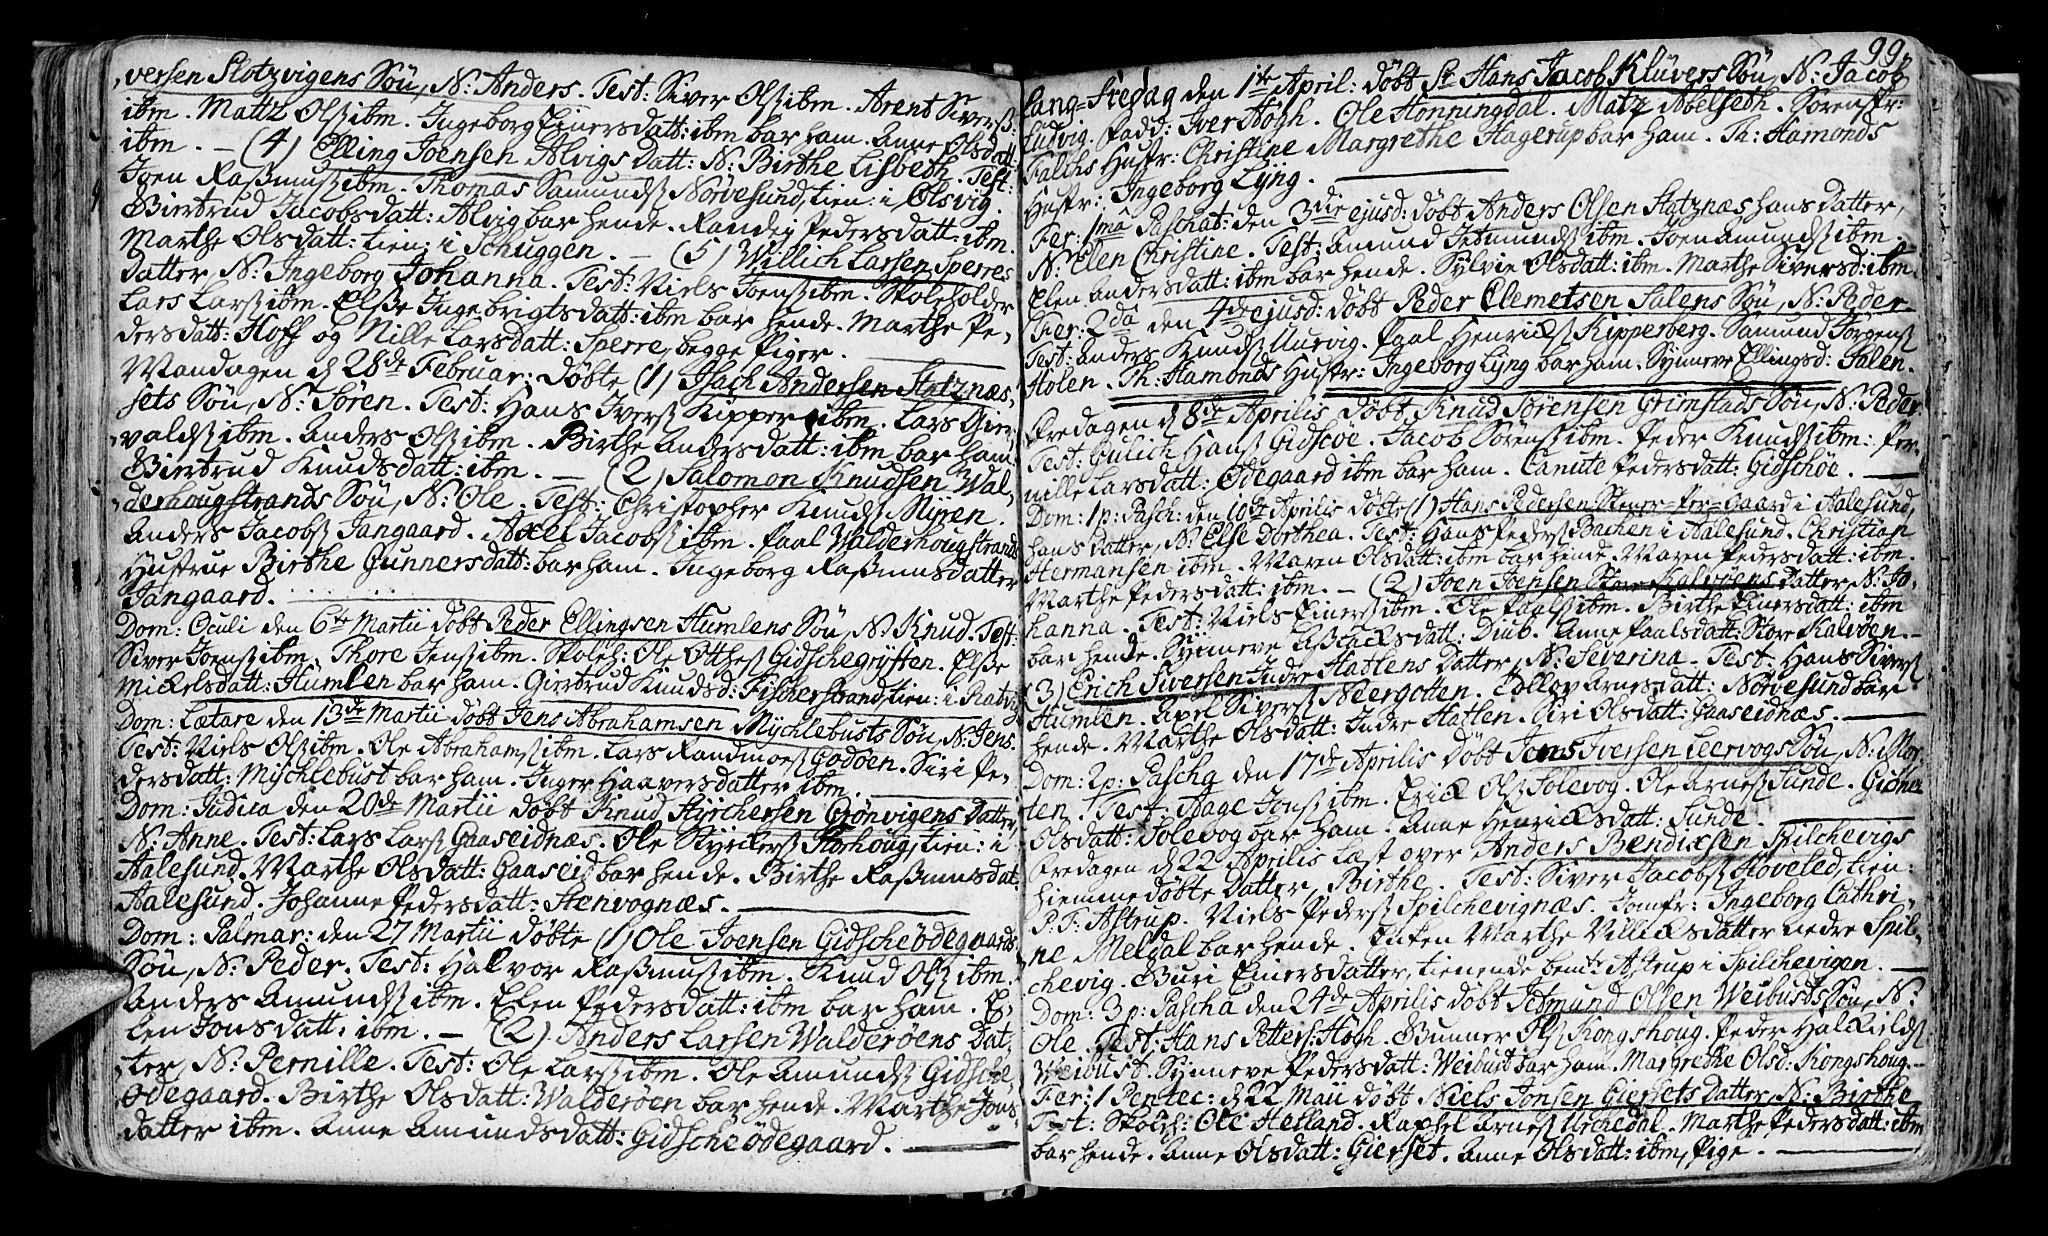 versen Slotzvigens Søn, N: Anders. Test: Siver Olsß ibm. Arent Siversß:
ibm. Mattz Olsß ibm. Ingeborg Einersdatt: ibm bar ham. Anne Olsdatt:
ibm. — (4) Elling Joensen Alvigs Datt: N: Birthe Lisbeth. Test:
Joen Raßmusß ibm. Thomas Samundsß Nørvesund, tien: i Olsvig.
Biertrud Jacobsdatt: Alvig bar hende. Randej Pedersdatt: ibm.
Marthe Olsdatt: tien: i Schuggen. — (5) Willich Larsen Sperres
Datter, N: Ingeborg Johanna. Test: Niels Joensß ibm. Skoleholder
Lars Larsß ibm. Elße Ingebrigtsdatt: ibm bar hende. Marthe Pe-
dersdatt: Hoff og Nille Larsdatt: Sperre, begge Piger.
Mandagen d 28de Februar: døbte (1) Isach Andersen Slotznæs-
sets Søn, N: Søren. Test: Hans Iversß Kipper ibm. Lars Gun-
valdsß ibm. Anders Olsß ibm. Birthe Andersdatt: ibm bar ham.
Biertrud Knudsdatt: ibm. — (2) Salomon Knudsen Wal-
derhougstrands Søn, N: Ole. Test: Christopher Knudsß Myren.
Anders Jacobsß Tangaard. Axel Jacobsß ibm. Paal Walderhougstrands
Hustrue Birthe Gunnersdatt: bar ham. Ingeborg Raßmusdatter
Tangaard.
Dom: Oculi den 6te Martii døbt Peder Ellingsen Humlens Søn, N: Knud. Test:
Siver Joensß ibm. Thore Jensß ibm. Skoleh: Ole Otthesß Gidschegrøften. Elße
Mickelsdatt: Humlen bar ham. Giertrud Knudsd: Fischerstrand, tien: i Ratvig
Dom: Lætare den 13de Martii døbt Jens Abrahamsen Mychlebusts Søn, N: Jens.
Test: Niels Olsß ibm. Ole Abrahamsß ibm. Lars Randmoesß Godøen. Siri Pe-
dersdatt: Myschlebust bar ham. Inger Haaversdatter ibm.
Dom: Judica den 20de Martii døbt Knud Styrchersen Grønvigens Datter,
N: Anne. Test: Lars Larsß Gaaseidnæs. Ole Styrckersß Storhoug, tien: i
Aalesund. Marthe Olsdatt: Gaaseid bar hende. Birthe Raßmusdat:
Aalesund. Johanne Pedersdatt: Stenvognæs.
Dom: Palmar: den 27 Martii døbte (1) Ole Joensen Gidscheødegaards
Søn, N: Peder. Test: Halvor Raßmusß ibm. Knud Olsß ibm.
Anders Amundsß ibm. Elen Pedersdatt: ibm bar ham. E-
len Jonsdatt: ibm. — (2) Anders Larsen Walderøens Dat-
ter, N: Pernille. Test: Ole Larsß ibm. Ole Amundsß Gidsche-
ødegaard. Birthe Olsdatt: Walderøen bar hende. Marthe Jons-
datter ibm. Anne Amundsdatt: Gidscheødegaard.
99.
Lang-Fredag den 1ste April: døbt Sr Hans Jacob Klüvers Søn, N: Jacob
Ludvig. Fadd: Iver Høgh. Ole Honningdal. Matz Abelseth. Sørensr:
Falchs Hustr: Christine Margrethe Hagerup bar ham. Th: Hamonds
Hustr: Ingeborg Lyng.
Fer: 1ma Paschat: den 3die ejusd: døbt Anders Olsen Slotznæs hans Datter,
N: Elen Christine. Test: Amund Jetmundsß ibm. Joen Amundsß ibm.
Elen Andersdatt: ibm bar hende. Sylvie Olsdatt: ibm. Marthe Siversd: ibm.
Fer: 2da den 4de ejusd: døbt Peder Clemetsen Salens Søn, N: Peder.
Test: Anders Knudsß Uurvig. Paal Henricksß Kipperberg. Samund Jørgensß
Holen. Th: Hamonds Hustr: Ingeborg Lyng bar ham. Synneve Ellingsd: Salen.
Fredagen d 8de Aprilis døbt Knud Sørensen Grimstads Søn, N: Peder
Test: Gulich Hansß Gidscøe. Jacob Sørensß ibm. Peder Knudsß ibm: Per-
nille Larsdatt: Ødegaard ibm bar ham. Canute Pedersdatt: Gidschøe.
Dom: 1 p: Pasch: den 10de Aprilis døbte (1) Hans Pedersen Stener-Per-Gaard i Aalesund,
hans Datter, N: Else Dorthea. Test: Hans Pedersß Bachen i Aalesund. Christian
Hermansen ibm. Maren Olsdatt: ibm bar hende. Maren Pedersdatt: ibm.
Marthe Pedersdatt: ibm. — (2) Joen Joensen Store Kalvøens Datter, N: Jo-
hanna. Test: Niels Einersß ibm. Ole Paalsß ibm. Birthe Einersdatt: ibm
bar hende. Synneve Aßlacksdatt: Diub. Anne Paalsdatt: Store Kalvøen.
(3) Erich Siversen Indre Hatlens Datter, N: Severina. Test: Hans Siversß
Humlen. Axel Siversß Neergotten. Tollov Arnesdatt: Nørvesund bar
hende. Marthe Olsdatt: Indre Hatlen. Siri Olsdatt: Gaaseidnæs.
Dom: 2 p: Pascha den 17de Aprilis døbt Jens Iversen Leervogs Søn, N: Mor-
ten. Test: Aage Jonsß ibm. Erick Olsß Solevog. Ole Arnesß Sunde. Gidner
Olsdatt: Solevog bar ham. Anne Henricksdatt: Sunde.
Fredagen d 22 Aprilis Læst over Anders Bendixsen Spilchevigs
hiemmedøbte Datter, Birthe. Test: Siver Jacobsß Hoveled, tien:
P. F: Astrup. Niels Pedersß Spilchevignæs. Jomfr: Ingeborg Cathri-
ne Meldal bar hende. Enken Marthe Villicksdatter nedre Spil-
chevig. Buri Einersdatter, tienende bemte Astrup i Spilchevigen.
Dom: 3 p: Pascha den 24de Aprilis døbt Jetmund Olsen Weibusts Søn, N:
Ole. Test: Hans Petters: Høgh. Gunner Olsß Kongshoug. Peder Halkieldsß
Weibust. Synneve Pedersdatt: Weibust bar ham. Margrethe Olsd: Kongshoug.
Fer: 1 Pentec: d 22 Maii døbt Niels Jonsen Giersets Datter, N: Birthe.
Test: Skoleh: Ole Helland. Raphel Arnesß Uschedal. Marthe Pedersdatt: ibm
bar hende. Anne Olsdatt: Gierset. Anne Olsdatt: ibm, Pige.